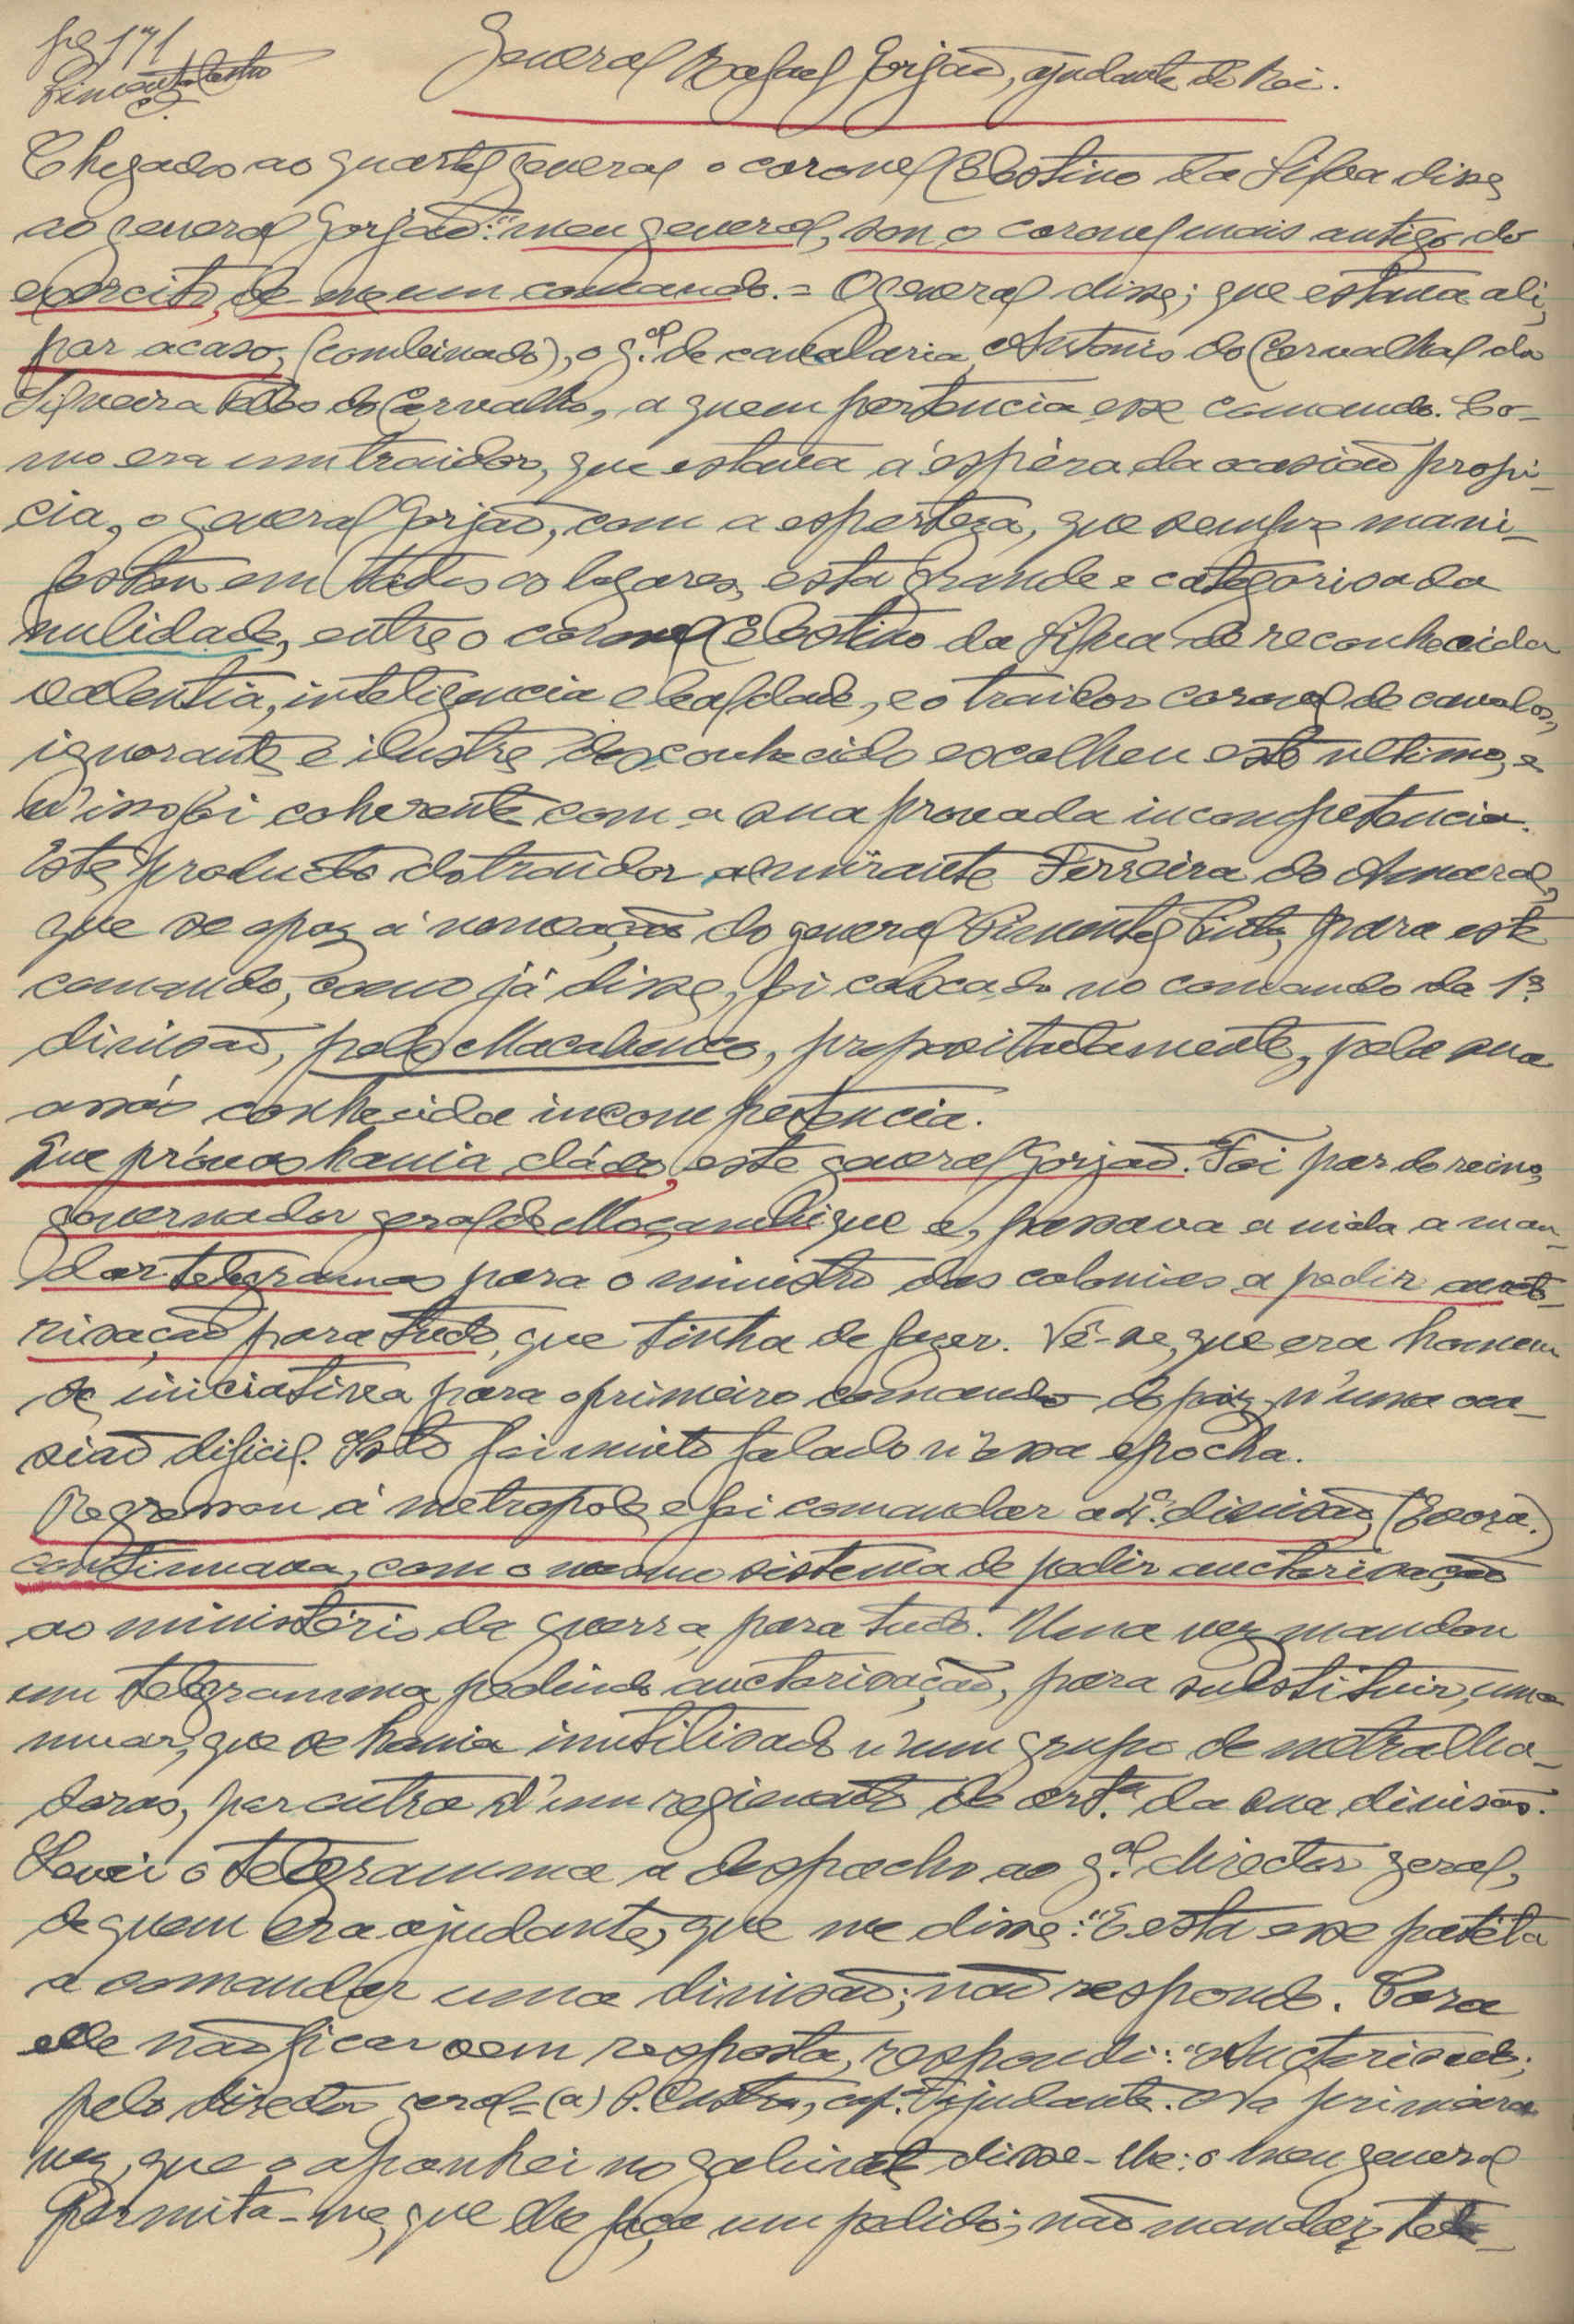 fg 171
General Rafael Gorjão, ajudante do Rei.
Chegado ao quartel general o coronel Celestino da Silva disse
ao general Gorjão: "meu general, sou o coronel mais antigo do
exercito, dê-me um comando. = O general disse; que estava ali,
por acaso, (combinado), o g.al de cavalaria, Antonio do Carvalhal da
Silveira Telles de Carvalho, a quem pertencia esse comando. Co-
mo era um traidor, que estava á espéra da ocasião propi-
cia, o general Gorjão, com a esperteza, que sempre mani-
festou em todos os logares, esta grande e categorisada
nulidade, entre o coronel Celestino da Silva de reconhecida
valentia, inteligencia e lealdade, e o traidor coronel de cavalos,
ignorante e ilustre desconhecido escolheu este ultimo, e
n'isso foi coherente com a sua provada incompetencia.
Este producto do traidor almirante Ferreira do Amaral,
que se opoz á nomeação do general Pimentel Pinto, para este
comando, como já disse, foi colocado no comando da 1ª
divisão, pelo Macabenco, propositadamente, pela sua
assás conhecida incompetencia.
Que próvas havia dádo, este general Gorjão. Foi par do reino,
governador geral de Moçambique e, passava a vida a man-
dar telegramas para o ministro das colonias a pedir aucto-
risação para tudo, que tinha de fazer. Vê-se, que era homem
de iniciativa para o primeiro comando do paiz, n'uma oca-
sião dificil. Isto foi muito falado n'essa epocha.
Regressou á metropole e foi comandar a 4ª. divisão, (Evora.)
continuava, com o mesmo sistema de pedir auctorisação
ao ministério da guerra, para tudo. Uma vez mandou
um telegramma, pedindo auctorisação, para substituir, uma
muar, que se havia inutilisado n'um grupo de metralha-
doras, por outra d'um regimento de art.ª da sua divisão.
Levei o telegramma a despacho ao g.al director geral,
de quem era ajudante, que me disse: "E está esse patéta
a comandar uma divisão; não respondo. Para
elle não ficar sem resposta, respondi: "Auctorisado;
pelo director geral = (a) P. Castro, cap. Ajudante. Na primeira
vez, que o apanhei no gabinete disse-lhe: o meu general
permita-me, que lhe faça um pedido; não mandar, tele-